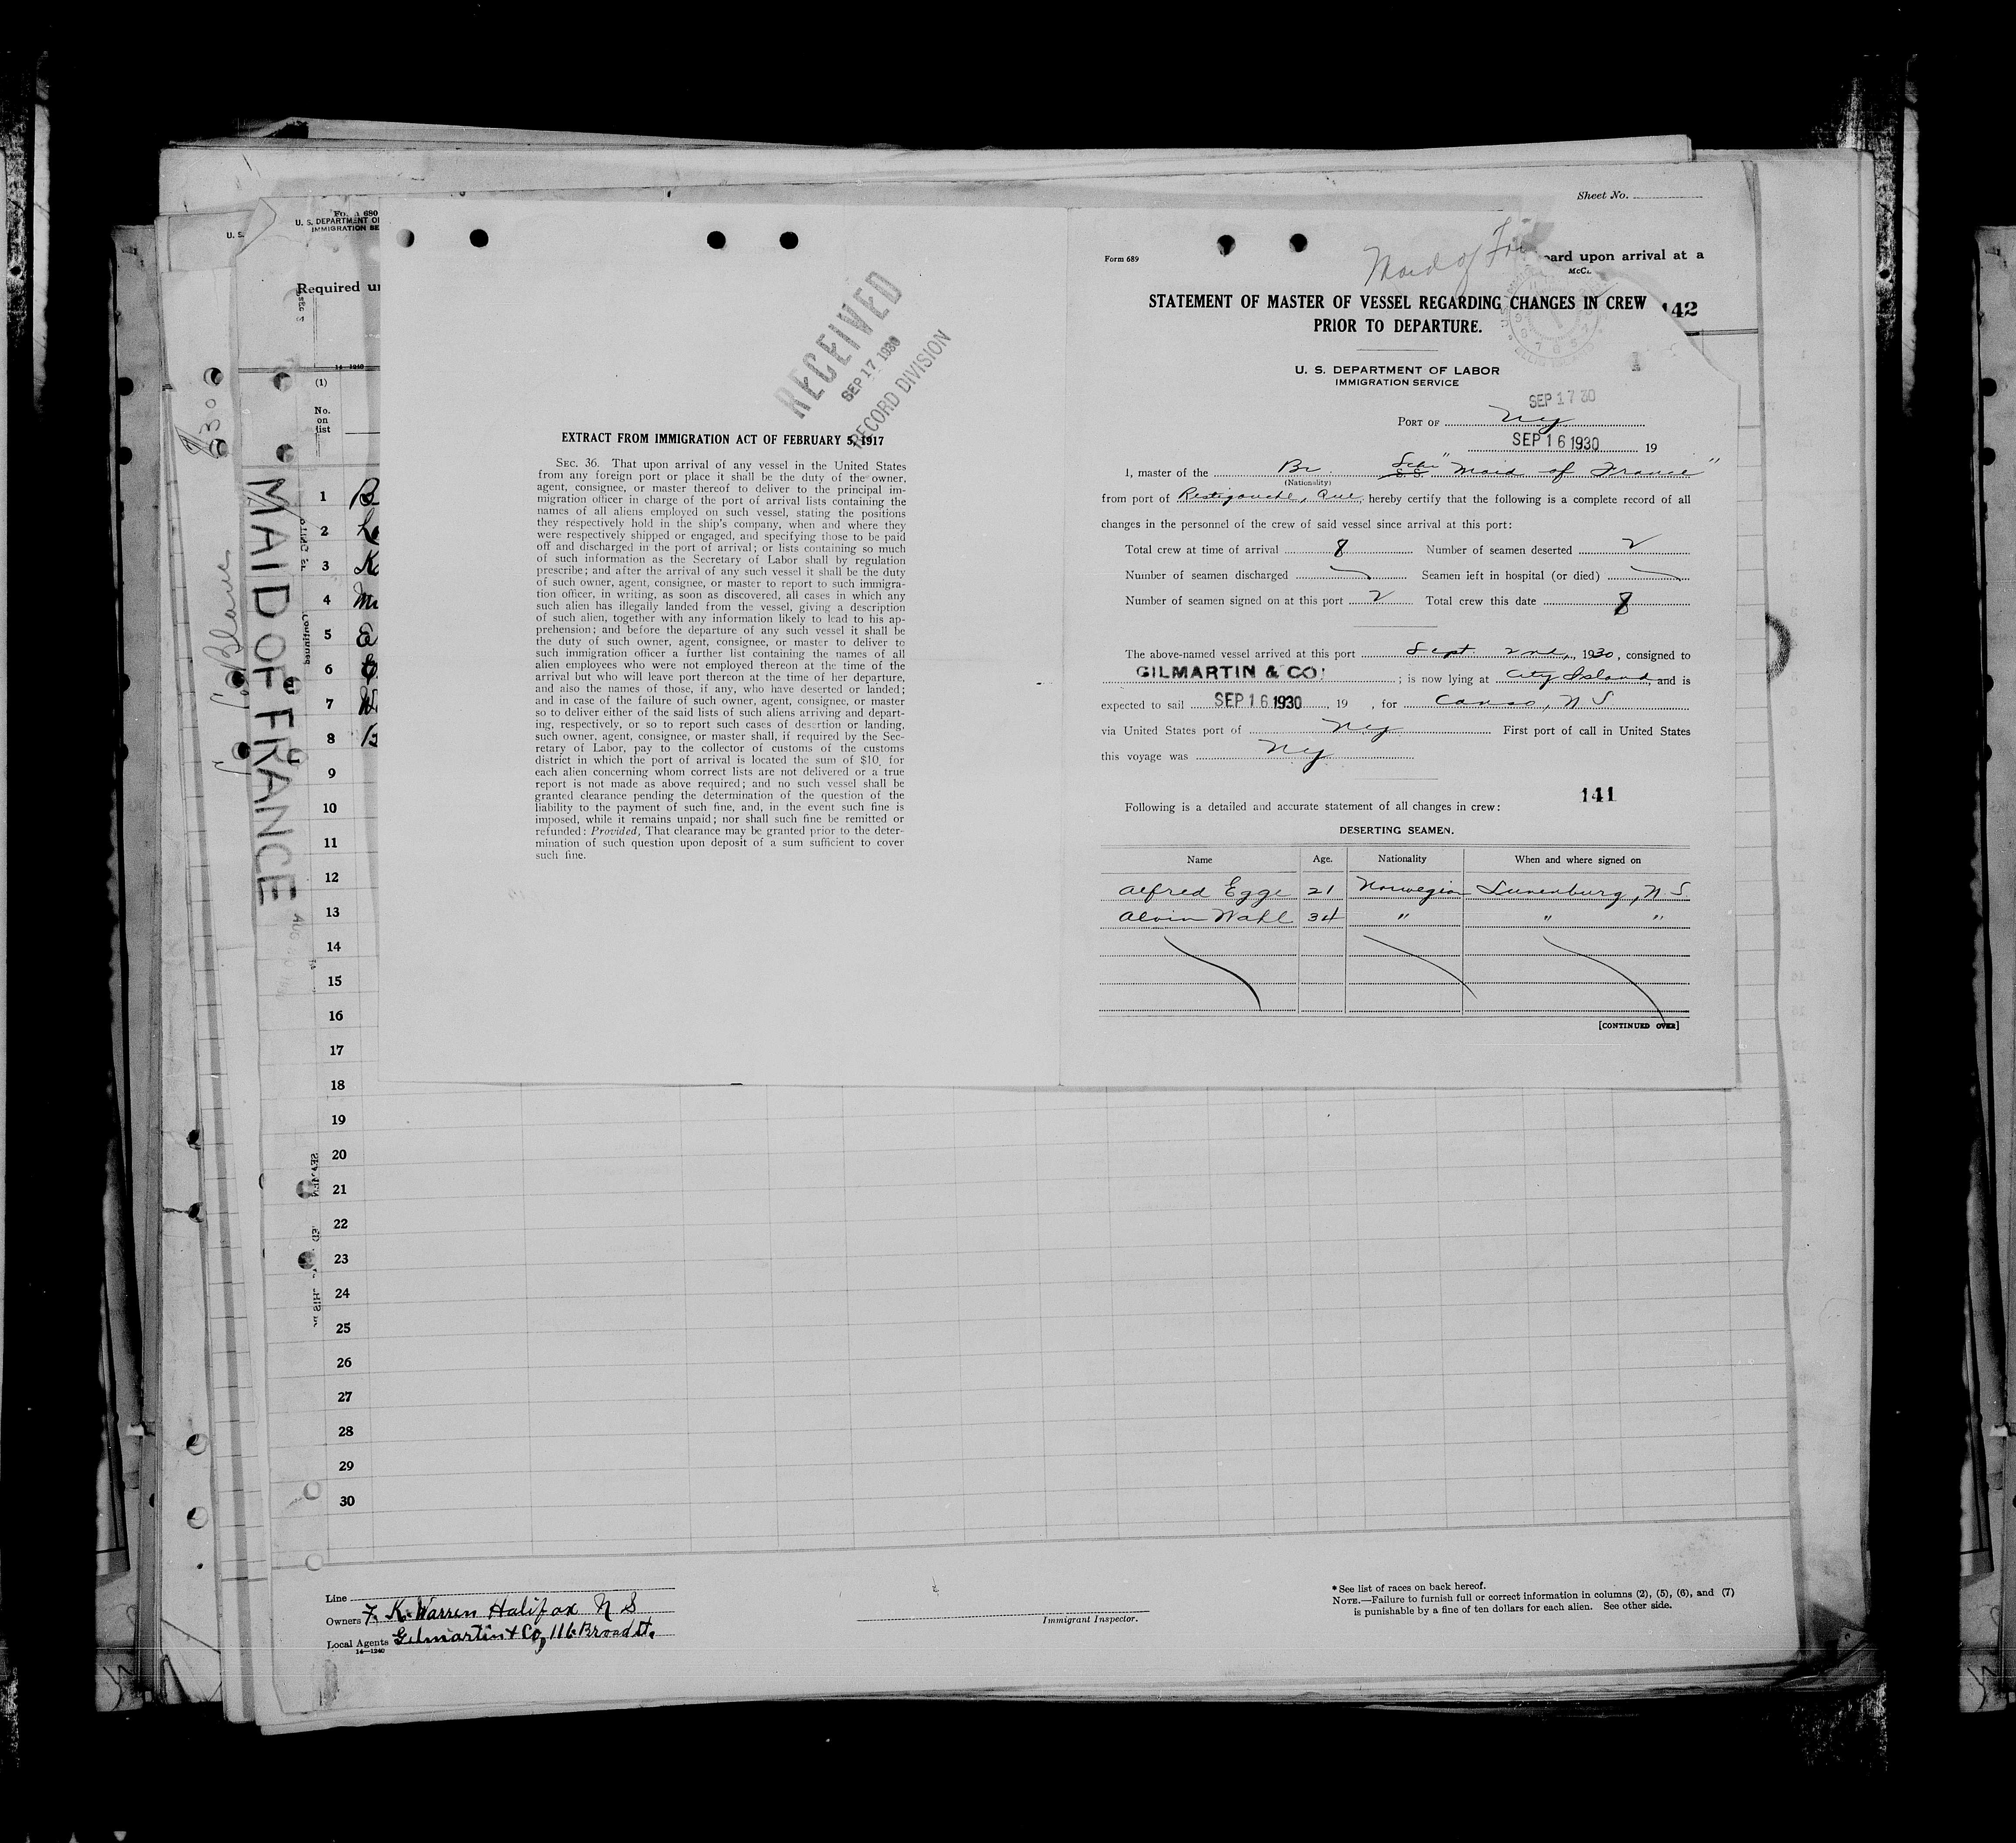 Sheet No.
Form 680
U. S. DEPARTMENT OF
IMMIGRATION SE
U. S.
Required un
14—1240
(1)
No.
on
list
1 B
2
3 K
4
5 E
6
7
8
9
10
11
12
13
14
15
16
17
18
19
20
21
22
23
24
25
26
27
28
29
30
MAID OF FRANCE
RECEIVED
SEP 17 1930
RECORD DIVISION
EXTRACT FROM IMMIGRATION ACT OF FEBRUARY 5, 1917
SEC. 36. That upon arrival of any vessel in the United States
from any foreign port or place it shall be the duty of the owner,
agent, consignee, or master thereof to deliver to the principal im-
migration officer in charge of the port of arrival lists containing the
names of all aliens employed on such vessel, stating the positions
they respectively hold in the ship's company, when and where they
were respectively shipped or engaged, and specifying those to be paid
off and discharged in the port of arrival; or lists containing so much
of such information as the Secretary of Labor shall by regulation
prescribe; and after the arrival of any such vessel it shall be the duty
of such owner, agent, consignee, or master to report to such immigra-
tion officer, in writing, as soon as discovered, all cases in which any
such alien has illegally landed from the vessel, giving a description
of such alien, together with any information likely to lead to his ap-
prehension; and before the departure of any such vessel it shall be
the duty of such owner, agent, consignee, or master to deliver to
such immigration officer a further list containing the names of all
alien employees who were not employed thereon at the time of the
arrival but who will leave port thereon at the time of her departure,
and also the names of those, if any, who have deserted or landed;
and in case of the failure of such owner, agent, consignee, or master
so to deliver either of the said lists of such aliens arriving and depart-
ing, respectively, or so to report such cases of desertion or landing,
such owner, agent, consignee, or master shall, if required by the Sec-
retary of Labor, pay to the collector of customs of the customs
district in which the port of arrival is located the sum of $10 for
each alien concerning whom correct lists are not delivered or a true
report is not made as above required; and no such vessel shall be
granted clearance pending the determination of the question of the
liability to the payment of such fine, and, in the event such fine is
imposed, while it remains unpaid; nor shall such fine be remitted or
refunded: Provided, That clearance may be granted prior to the deter-
mination of such question upon deposit of a sum sufficient to cover
such fine.
Form 689
Maid of
oard upon arrival at a
McCl.
STATEMENT OF MASTER OF VESSEL REGARDING CHANGES IN CREW
142
PRIOR TO DEPARTURE.
U. S. DEPARTMENT OF LABOR
IMMIGRATION SERVICE
SEP 17 30
PORT OF NY
SEP 16 1930 19
I, master of the Br. Schr "Maid of France"
(Nationality)
from port of Restigouche, Que, hereby certify that the following is a complete record of all
changes in the personnel of the crew of said vessel since arrival at this port:
Total crew at time of arrival 8 Number of seamen deserted 2
Number of seamen discharged Seamen left in hospital (or died)
Number of seamen signed on at this port 2 Total crew this date 8
The above-named vessel arrived at this port Sept 2nd, 1930, consigned to
GILMARTIN & CO. ; is now lying at City Island, and is
expected to sail SEP 16 1930, 19 , for Canso, N S
via United States port of NY First port of call in United States
this voyage was NY
141
Following is a detailed and accurate statement of all changes in crew:
DESERTING SEAMEN.
Name Age. Nationality When and where signed on
Alfred Egge 21 Norwegian Lunenburg, N S
Alvin Wahl 34 " " "
[CONTINUED OVER]
Line
Owners F. K. Warren Halifax N S
Local Agents Gilmartin & Co, 116 Broad St.
14—1240
Immigrant Inspector.
* See list of races on back hereof.
NOTE.—Failure to furnish full or correct information in columns (2), (5), (6), and (7)
is punishable by a fine of ten dollars for each alien. See other side.